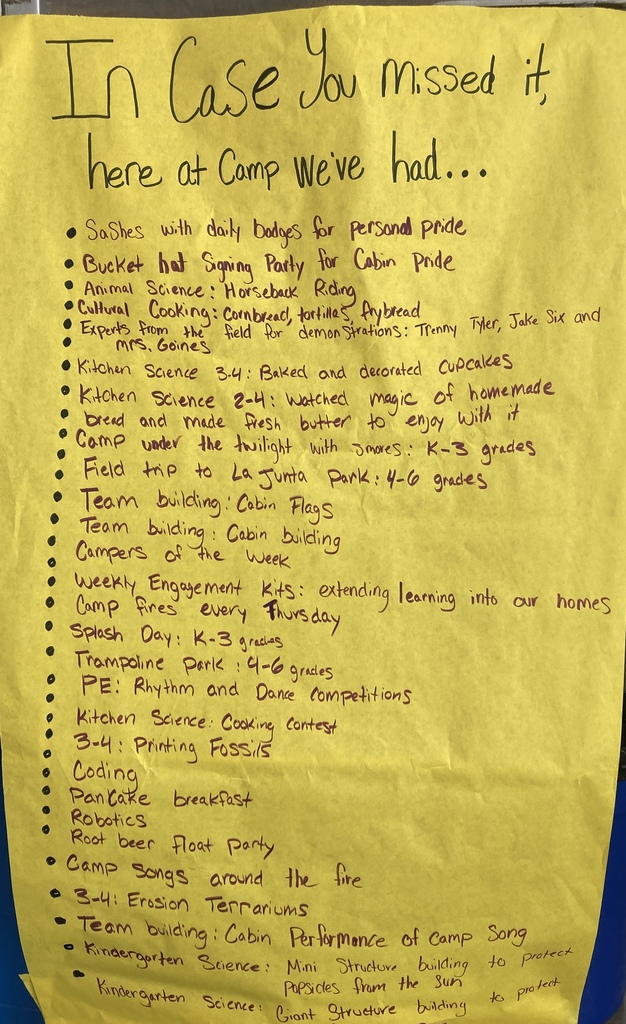 In Case You missed it,
here at Camp we've had...
• Sashes with daily badges for personal pride
• Bucket hat Signing Party for Cabin Pride
• Animal Science: Horseback Riding
• Cultural Cooking: Cornbread, tortillas, frybread
• Experts from the field for demonstrations: Trenny Tyler, Jake Six and
• Mrs. Goines
• Kitchen Science 3-4: Baked and decorated cupcakes
• Kitchen Science 2-4: Watched magic of homemade
• bread and made fresh butter to enjoy with it
• Camp under the twilight with smores: K-3 grades
• Field trip to La Junta Park: 4-6 grades
• Team building: Cabin Flags
• Team building: Cabin building
• Campers of the Week
• Weekly Engagement Kits: extending learning into our homes
• Camp fires every Thursday
• Splash Day: K-3 grades
• Trampoline Park: 4-6 grades
• PE: Rhythm and Dance Competitions
• Kitchen Science: Cooking Contest
• 3-4: Printing Fossils
• Coding
• Pancake breakfast
• Robotics
• Root beer float party
• Camp Songs around the fire
• 3-4: Erosion Terrariums
• Team building: Cabin Performance of Camp Song
• Kindergarten Science: Mini Structure building to protect
Popsicles from the Sun
• Kindergarten Science: Giant Structure building to protect